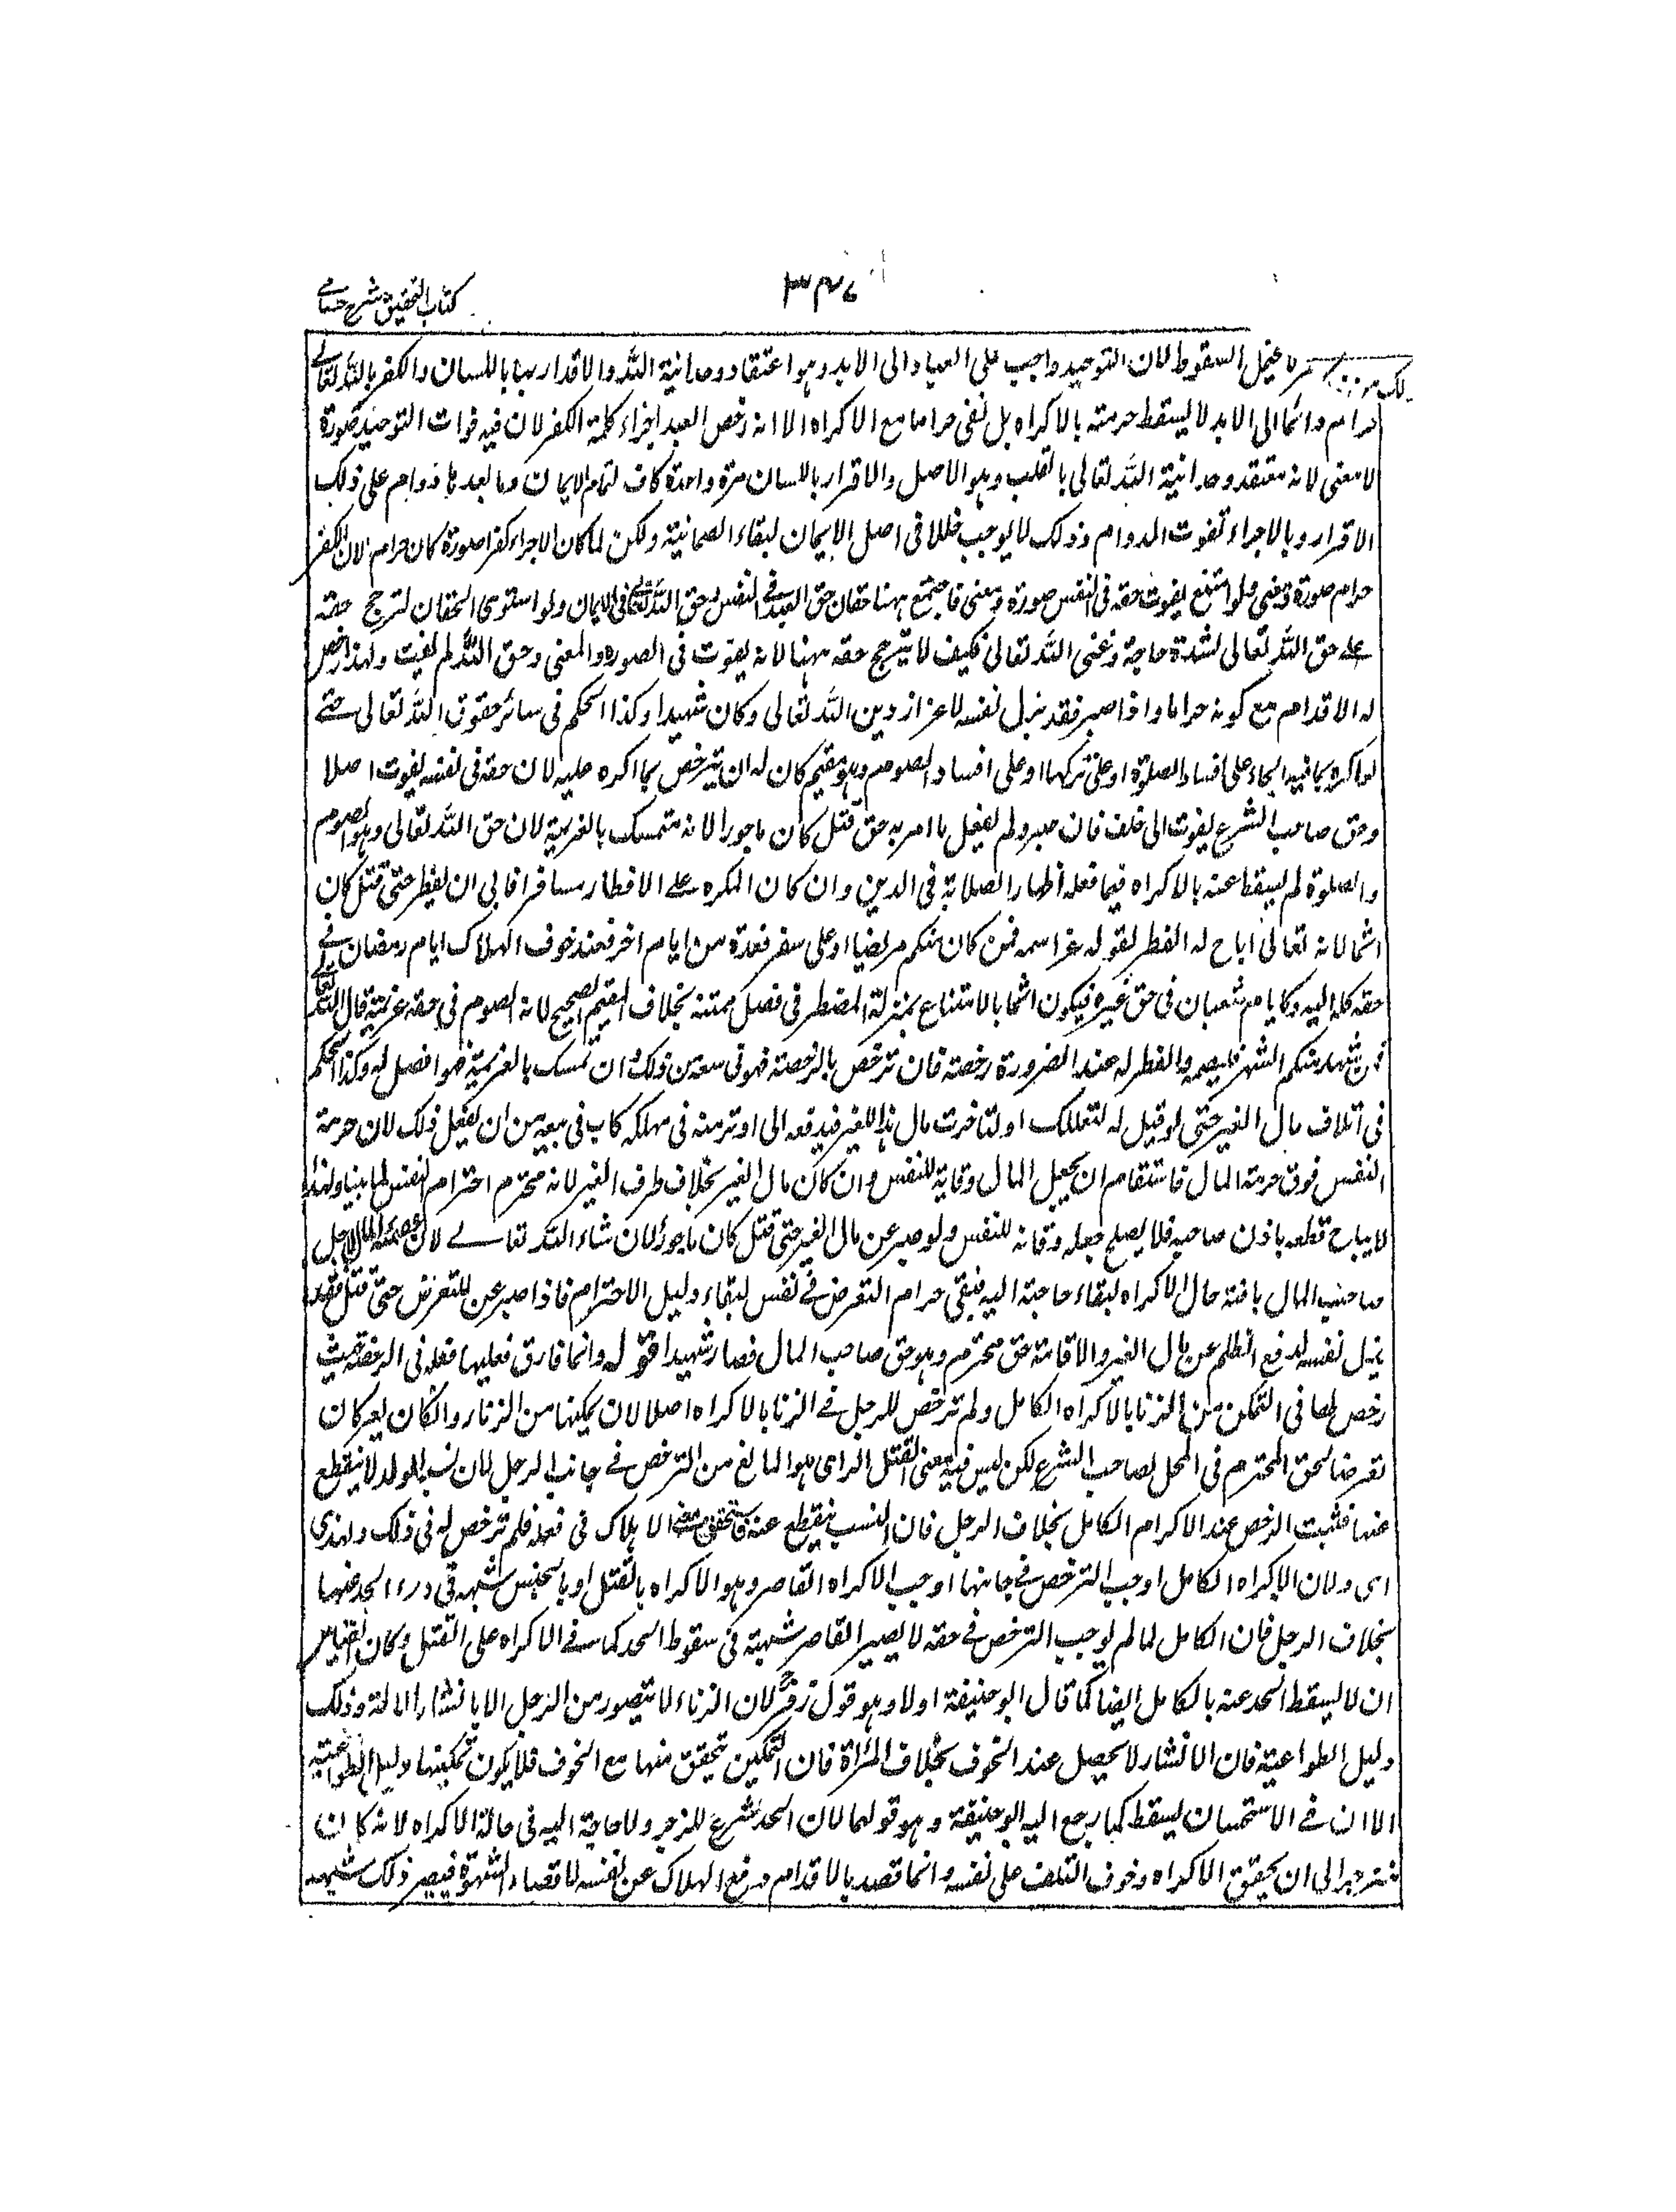 كتاب التحقيق شرح حسامي
٣٤٧
يحتمل السقوط لان التوحيد واجب على العباد الى الابد وهو اعتقاد وحدانية الله والاقرار بها باللسان والكفر بالله تعالى
حرام دائما الى الابد لا يسقط حرمته بالاكراه بل نفى حراما مع الاكراه الا انه رخص العبد اجراء كلمة الكفر لان فيه فوات التوحيد صورة
لا معنى لانه معتقد وحدانية الله تعالى بالقلب وهو الاصل والاقرار باللسان مرة واحدة كاف لتمام الايمان وما بعدها دوام على ذلك
الاقرار وبالاجراء تفوت الدوام وذلك لا يوجب خللا فى اصل الايمان لبقاء الطمانية ولكن لما كان الاجراء كفرا صورة كان حرام لان الكفر
حرام صورة ومعنى فلو امتنع يفوت حقه فى النفس صورة ومعنى فاجتمع ههنا حقان حق العبد فى النفس وحق الله تعالى فى الايمان ولو استوى الحقان لترجح حقه
على حق الله تعالى لشدة حاجة وغنى الله تعالى فكيف لا يترجح حقه ههنا لانه يفوت فى الصورة والمعنى وحق الله لم يفت ولهذا رخص
له الاقدام مع كونه حراما واذا صبر فقد بذل نفسه لاعزاز دين الله تعالى وكان شهيدا وكذا الحكم فى سائر حقوق الله تعالى حتى
لو اكره بما فيه الجاء على افساد الصلوة او على تركها او على افساد الصوم وهو مقيم كان له ان يترخص بما اكره عليه لان حقه فى نفسه يفوت اصلا
وحق صاحب الشرع يفوت الى خلف فان صبر ولم يفعل ما امر به حتى قتل كان ماجورا لانه متمسك بالعزيمة لان حق الله تعالى وهو الصوم
والصلوة لم يسقط عنه بالاكراه فيما فعله اظهار الصلابة فى الدين وان كان المكره على الافطار مسافرا فابى ان يفطر حتى قتل كان
اثما لانه تعالى اباح له الفطر لقوله عز اسمه فمن كان منكم مريضا او على سفر فعدة من ايام اخر فعند خوف الهلاك ايام رمضان فى
حقه كلياليه وكايام شعبان فى حق غيره فيكون اثما بالامتناع بمنزلة المضطر فى فصل ميتة بخلاف المقيم الصحيح لانه الصوم فى حقه عزيمة قال الله تعالى
فمن شهد منكم الشهر فليصمه والفطر له عند الضرورة رخصة فان ترخص بالرخصة فهو فى سعة من ذلك وان تمسك بالعزيمة فهو افضل له وكذا الحكم
فى اتلاف مال الغير حتى لو قيل له لنقتلنك او لتاخذن مال هذا الغير فتدفعه الى او ترميه فى مهلكه كان فى سعة من ان يفعل ذلك لان حرمة
النفس فوق حرمة المال فاستقام ان يجعل المال وقاية للنفس وان كان مال الغير بخلاف طرف الغير لانه محترم احترام النفس لما بينا ولهذا
لا يباح قطعه باذن صاحبه فلا يصلح جعله وقاية للنفس ولو صبر عن مال الغير حتى قتل كان ماجورا ان شاء الله تعالى لان عصمة المال لاجل
صاحب المال باقية حال الاكراه لبقاء حاجته اليه فيبقى حرام التعرض فى نفس لبقاء دليل الاحترام فاذا صبر عن التعرض حتى قتل فقد
بذل نفسه لدفع الظلم عن مال الغير والاقامة حق محترم وهو حق صاحب المال فصار شهيدا قوله وانما فارق فعلها فعله فى الرخصة حيث
رخص لها فى التمكن من الزنا بالاكراه الكامل ولم ترخص للرجل فى الزنا بالاكراه اصلا لان تمكينها من الزنا وان كان
تعرضا لحق المحترم فى المحل لصاحب الشرع لكن ليس فيه معنى القتل الذى هو المانع من الترخص فى جانب الرجل لان نسب الولد لا ينقطع
عنها فثبت الرخص عند الاكرام الكامل بخلاف الرجل فان النسب ينقطع عنه فيتحقق معنى الاهلاك فى فعله فلم ترخص له فى ذلك ولهذا
اى ولان الاكراه الكامل اوجب الترخص فى جانبها اوجب الاكراه القاصر وهو الاكراه بالقتل او بالحبس شبهة فى درء الحد عنها
بخلاف الرجل فان الكامل لما لم يوجب الترخص فى حقه لا يصير القاصر شبهة فى سقوط الحد كما فى الاكراه على القتل وكان القياس
ان لا يسقط الحد عنه بالكامل ايضا كما قال ابو حنيفة اولا وهو قول زفر لان الزناء لا يتصور من الرجل الا بانتشار الالة وذلك
دليل الطواعية فان الانتشار لا يحصل عند الخوف بخلاف المراة فان التمكين يتحقق منها مع الخوف فلا يكون تمكينها دليل الطواعية
الا ان فى الاستحسان يسقط كما رجع اليه ابو حنيفة وهو قولهما لان الحد شرع للزجر ولا حاجة اليه فى حالة الاكراه لانه كان
منزجرا الى ان يحقق الاكراه وخوف التلف على نفسه وانما قصد بالاقدام دفع الهلاك عن نفسه لا قضاء الشهوة فيصير ذلك شبهة